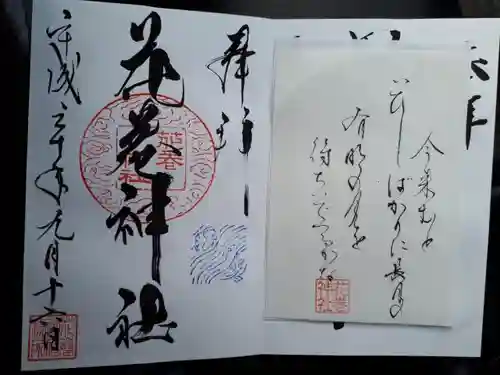 今来むと
いひしばかりに長月の
有明の月を
待ちいでつるかな
奉拝
花巻神社
平成三十年九月十六日